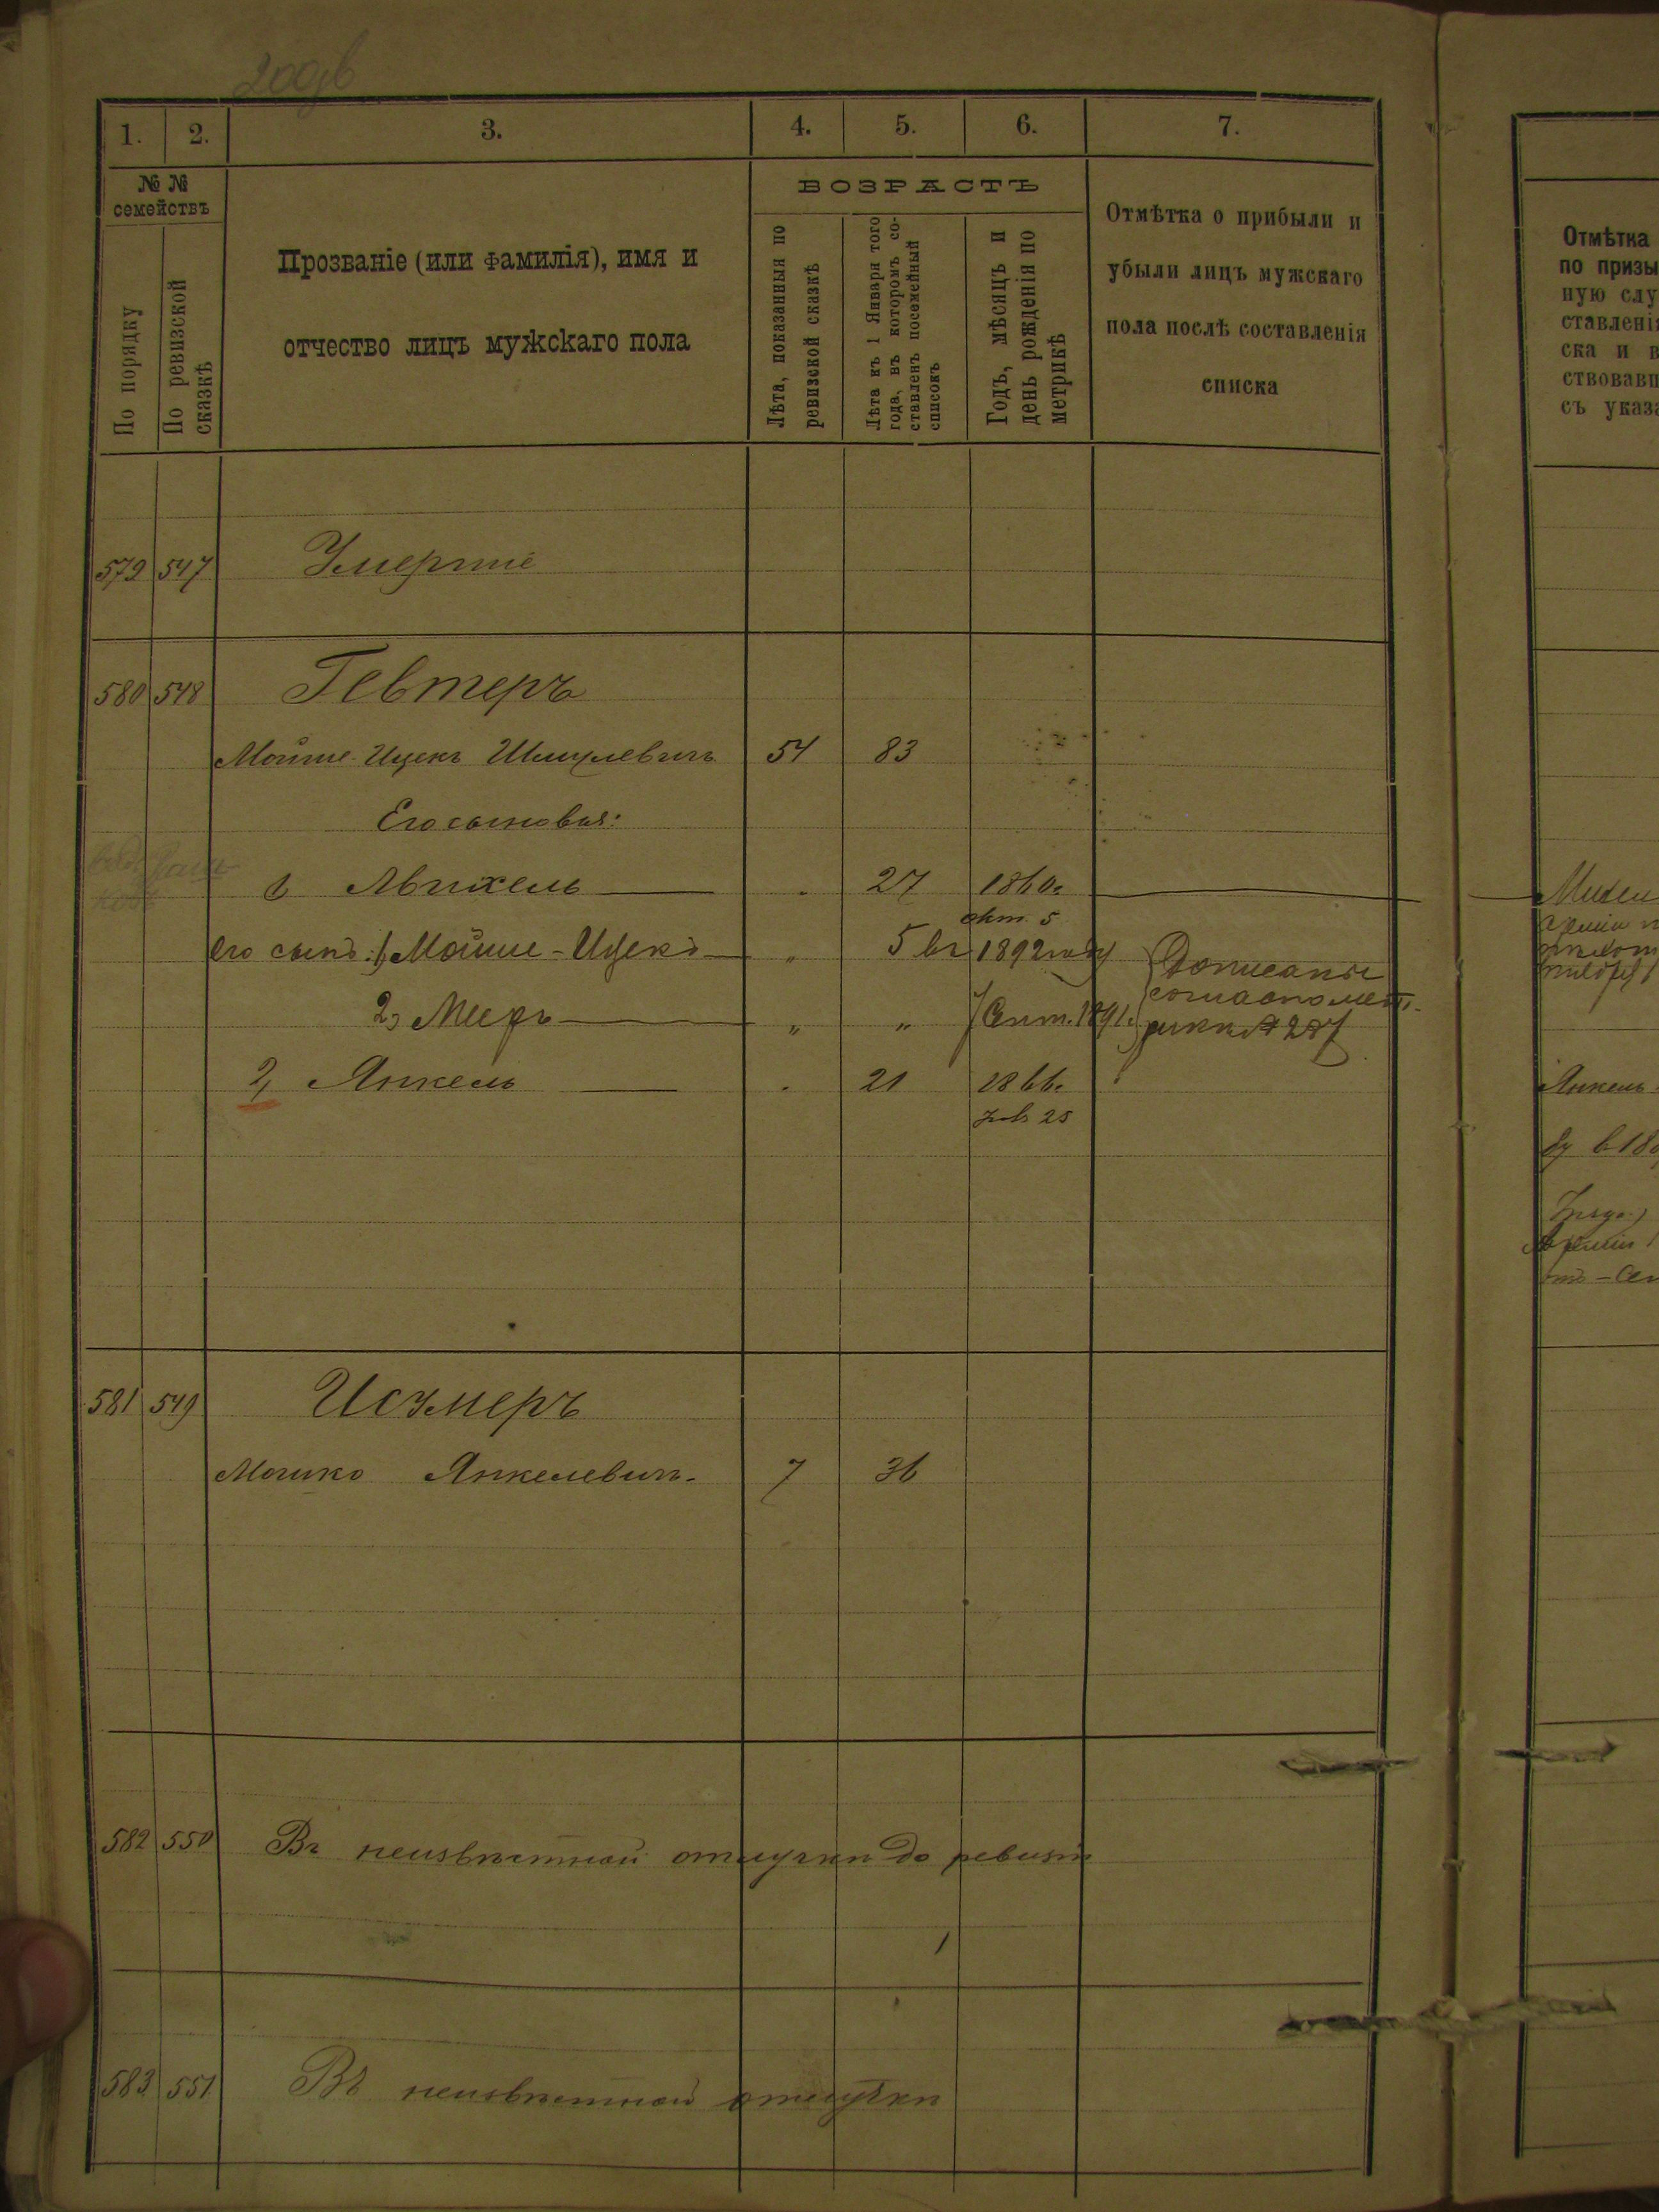 200об
1. 2. 3. 4. 5. 6. 7.
№ №
семействъ
По порядку
По ревизской
сказкѣ
Прозваніе (или фамилія), имя и
отчество лицъ мужскаго пола
ВОЗРАСТЪ
Лѣта, показанныя по
ревизской сказкѣ
Лѣта къ 1 Января того
года, въ которомъ со-
ставленъ посемейный
списокъ
Годъ, мѣсяцъ и
день рожденія по
метрикѣ
Отмѣтка о прибыли и
убыли лицъ мужскаго
пола послѣ составленія
списка
579 547 Умершіе
580 548 Гевтеръ
Мойше-Ицекъ Шмулевичъ 54 83
Его сыновья:
1 27 1860.
окт. 5
его сынъ: 1, Мойше-Ицекъ „ 5 1892 году
2, Мееръ „ „ 1891. Дописаны
согласно мет-
2, Янкель 21 1866.
25
581 549
Мошко Янкелевичъ. 7 36
582 550 Въ неизвѣстной отлучкѣ до ревизіи
583 551 Въ неизвѣстной отлучкѣ
Отмѣтка
по призы
ную слу
ставленія
ска и в
ствовавш
съ указа
Янкель